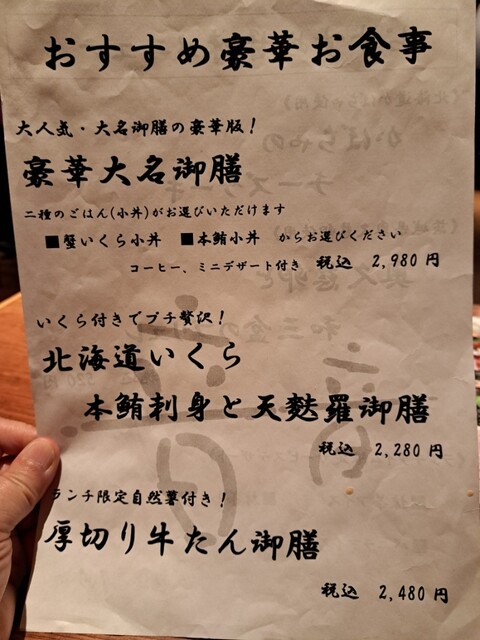 おすすめ豪華お食事
大人気・大名御膳の豪華版！
豪華大名御膳
二種のごはん(小丼)がお選びいただけます
■蟹いくら小丼　■本鮪小丼　からお選びください
コーヒー、ミニデザート付き　税込　2,980円
いくら付きでプチ贅沢！
北海道いくら
本鮪刺身と天麩羅御膳
税込　2,280円
ランチ限定自然薯付き！
厚切り牛たん御膳
税込　2,480円